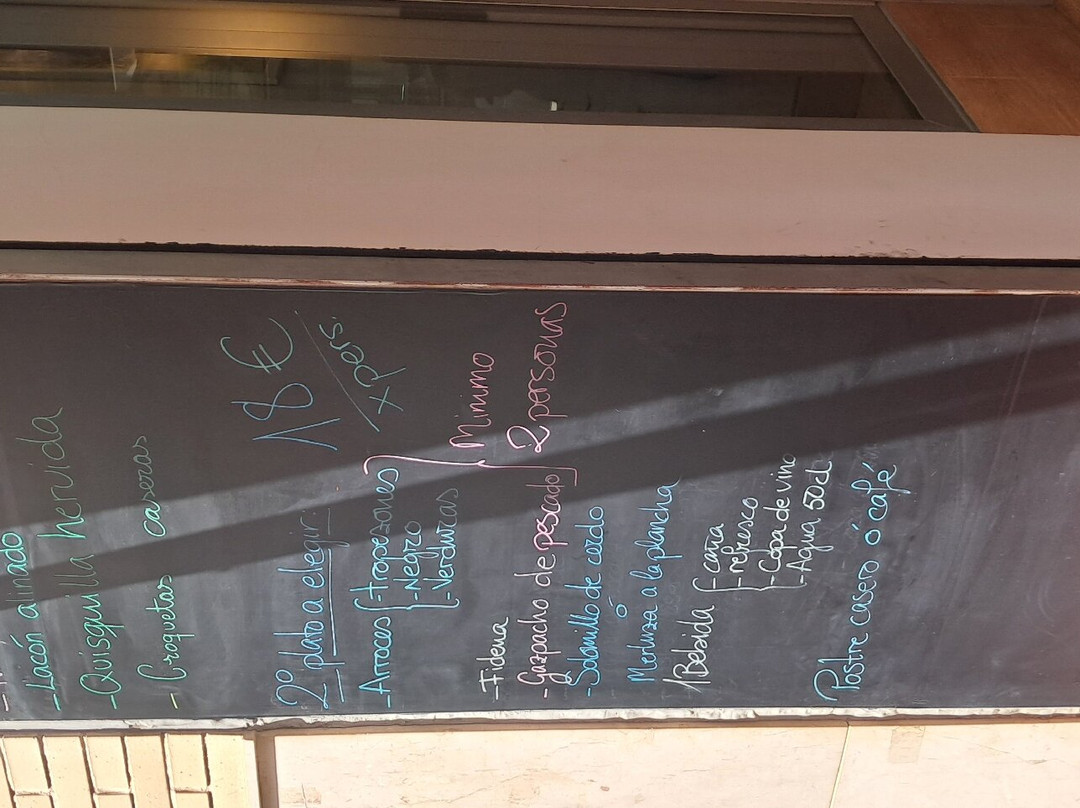 -Lacón aliñado
-Quisquilla hervida
-Croquetas caseras
18€
x pers.
2º plato a elegir:
-Arroces -tropezones
-Negro
-Verduras
Minimo
2 personas
-Fideua
-Gazpacho de pescado
-Solomillo de cerdo
ó
Merluza a la plancha
1 Bebida -caña
-refresco
-Copa de vino
-Agua 50cl
Postre casero ó café